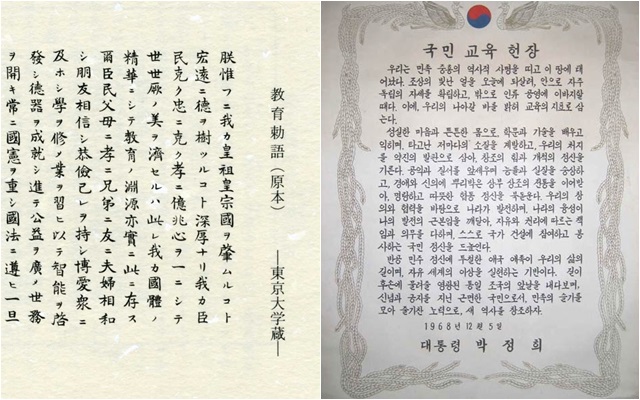 教育勅語(原本) ―東京大学蔵―
朕惟フニ我カ皇祖皇宗國ヲ肇ムルコト
宏遠ニ德ヲ樹ツルコト深厚ナリ我カ臣
民克ク忠ニ克ク孝ニ億兆心ヲ一ニシテ
世世厥ノ美ヲ濟セルハ此レ我カ國體ノ
精華ニシテ教育ノ淵源亦實ニ此ニ存ス
爾臣民父母ニ孝ニ兄弟ニ友ニ夫婦相和
シ朋友相信シ恭儉己レヲ持シ博愛衆ニ
及ホシ學ヲ修メ業ヲ習ヒ以テ智能ヲ啓
發シ德器ヲ成就シ進テ公益ヲ廣メ世務
ヲ開キ常ニ國憲ヲ重シ國法ニ遵ヒ一旦
국민 교육 헌장
우리는 민족 중흥의 역사적 사명을 띠고 이 땅에 태
어났다. 조상의 빛난 얼을 오늘에 되살려, 안으로 자주
독립의 자세를 확립하고, 밖으로 인류 공영에 이바지할
때다. 이에, 우리의 나아갈 바를 밝혀 교육의 지표로 삼
는다.
성실한 마음과 튼튼한 몸으로, 학문과 기술을 배우고
익히며, 타고난 저마다의 소질을 계발하고, 우리의 처지
를 약진의 발판으로 삼아, 창조의 힘과 개척의 정신을
기른다. 공익과 질서를 앞세우며 능률과 실질을 숭상하
고, 경애와 신의에 뿌리박은 상부 상조의 전통을 이어받
아, 명랑하고 따뜻한 협동 정신을 북돋운다. 우리의 창
의와 협력을 바탕으로 나라가 발전하며, 나라의 융성이
나의 발전의 근본임을 깨달아, 자유와 권리에 따르는 책
임과 의무를 다하며, 스스로 국가 건설에 참여하고 봉
사하는 국민 정신을 드높인다.
반공 민주 정신에 투철한 애국 애족이 우리의 삶의
길이며, 자유 세계의 이상을 실현하는 기반이다. 길이
후손에 물려줄 영광된 통일 조국의 앞날을 내다보며,
신념과 긍지를 지닌 근면한 국민으로서, 민족의 슬기를
모아 줄기찬 노력으로, 새 역사를 창조하자.
1968년 12월 5일
대통령 박정희